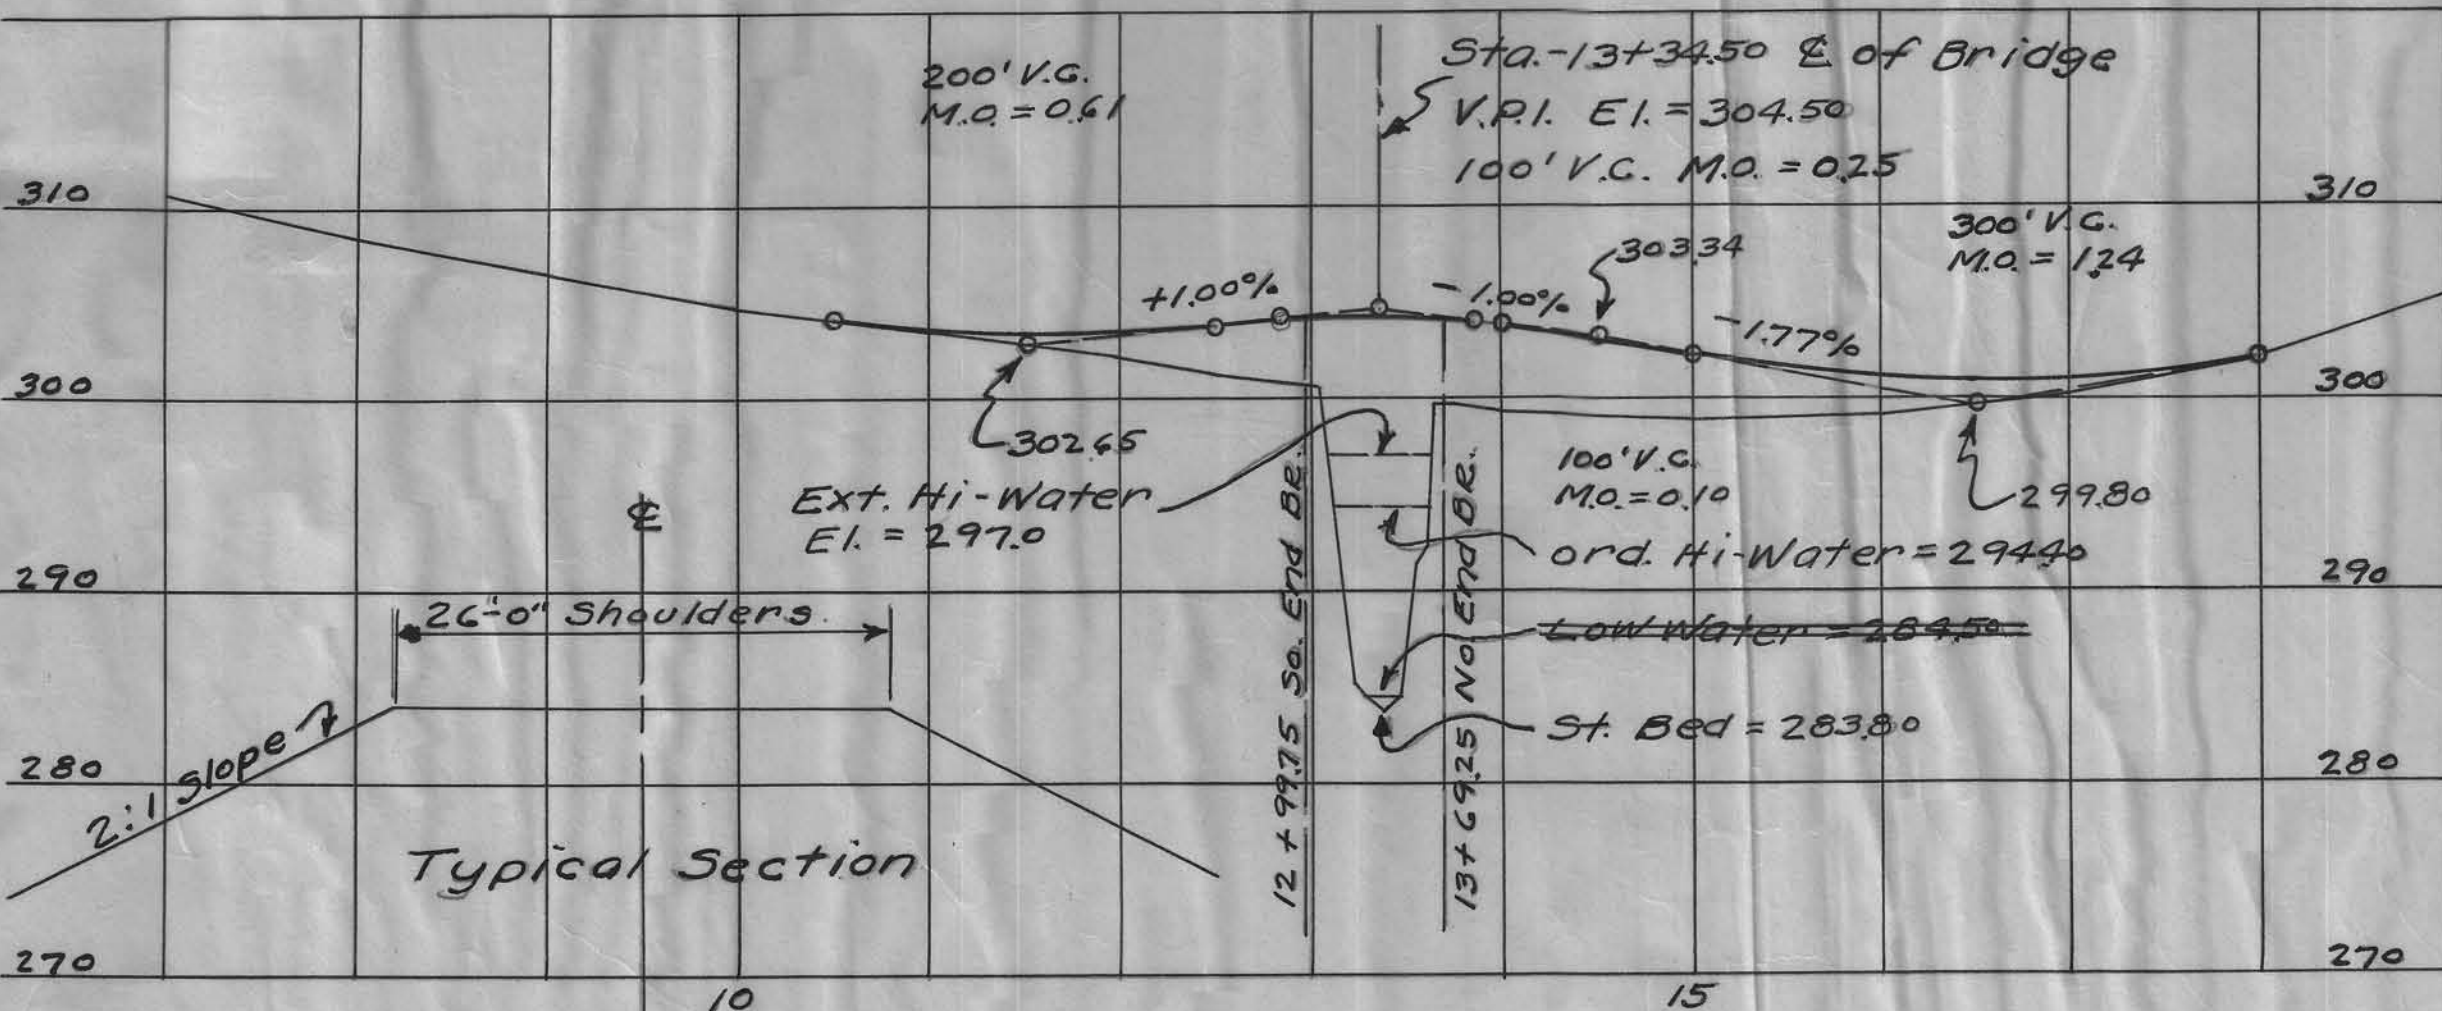 200' V.C.
M.O. = 0.61
Sta.-13+34.50 ℄ of Bridge
V.P.I. El. = 304.50
100' V.C. M.O. = 0.25
310
310
300' V.C.
M.O. = 1.24
303.34
+1.00%
-1.00%
-1.77%
300
300
302.65
Ext. Hi-Water
El. = 297.0
100' V.C.
M.O. = 0.10
299.80
℄
ord. Hi-Water = 294.40
290
290
26'-0" Shoulders
Low Water = 284.50
St. Bed = 283.80
2:1 Slope
280
280
12 + 99.75 So. End BR.
13 + 69.25 No. End BR.
Typical Section
270
270
10
15